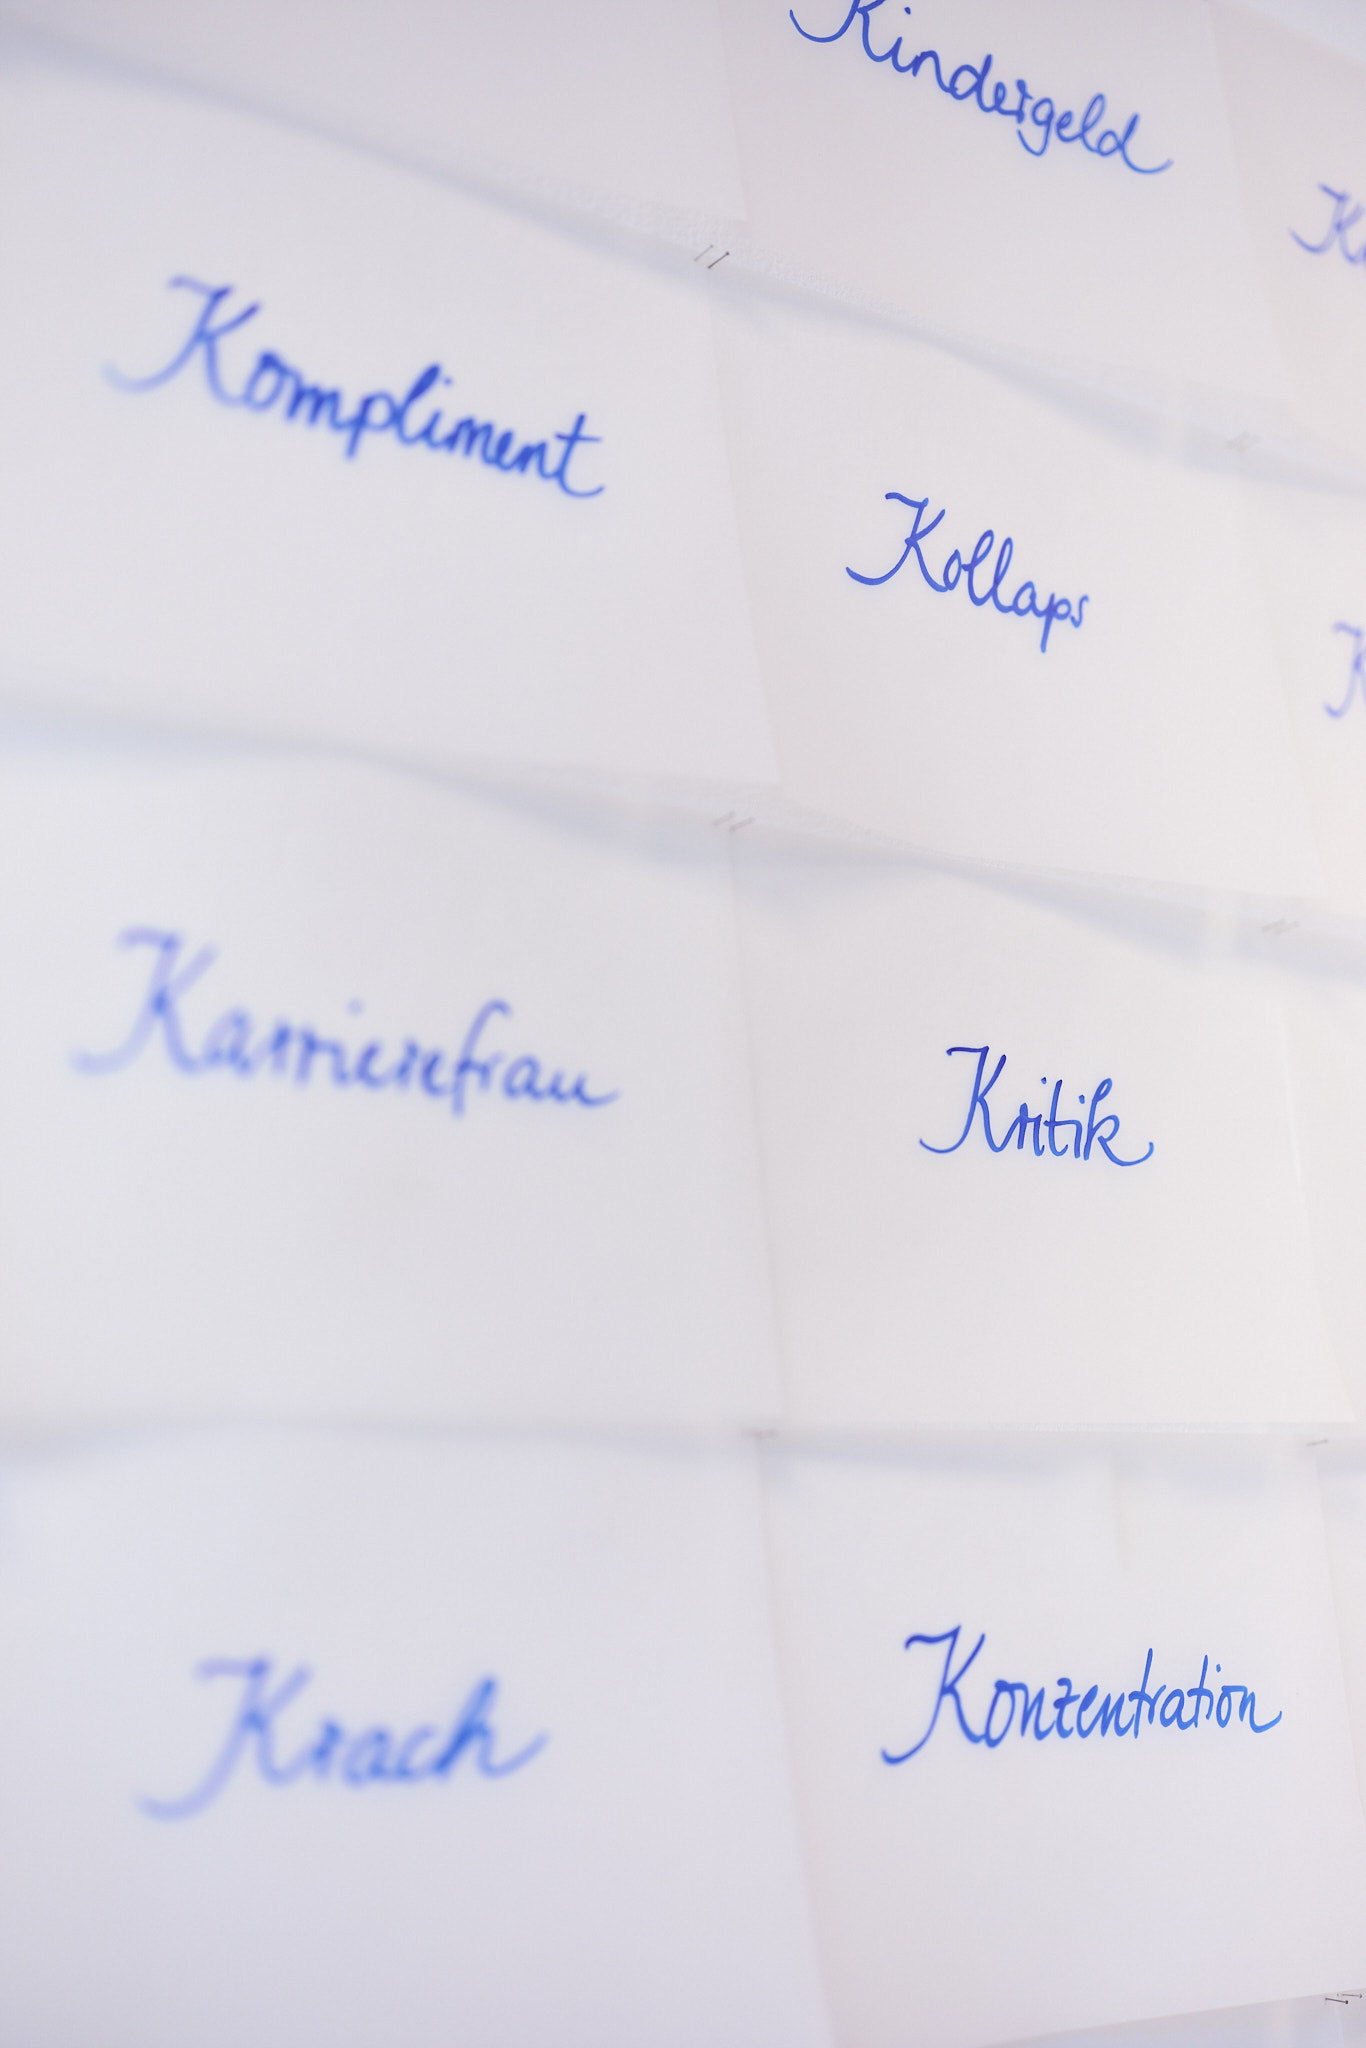 Kindergeld
Kompliment
Kollaps
Karrierefrau
Kritik
Krach
Konzentration